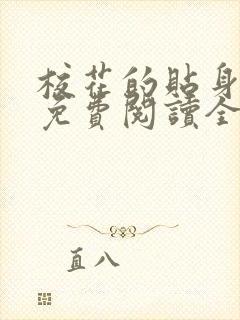 校花的貼身
免費閱讀全
直八